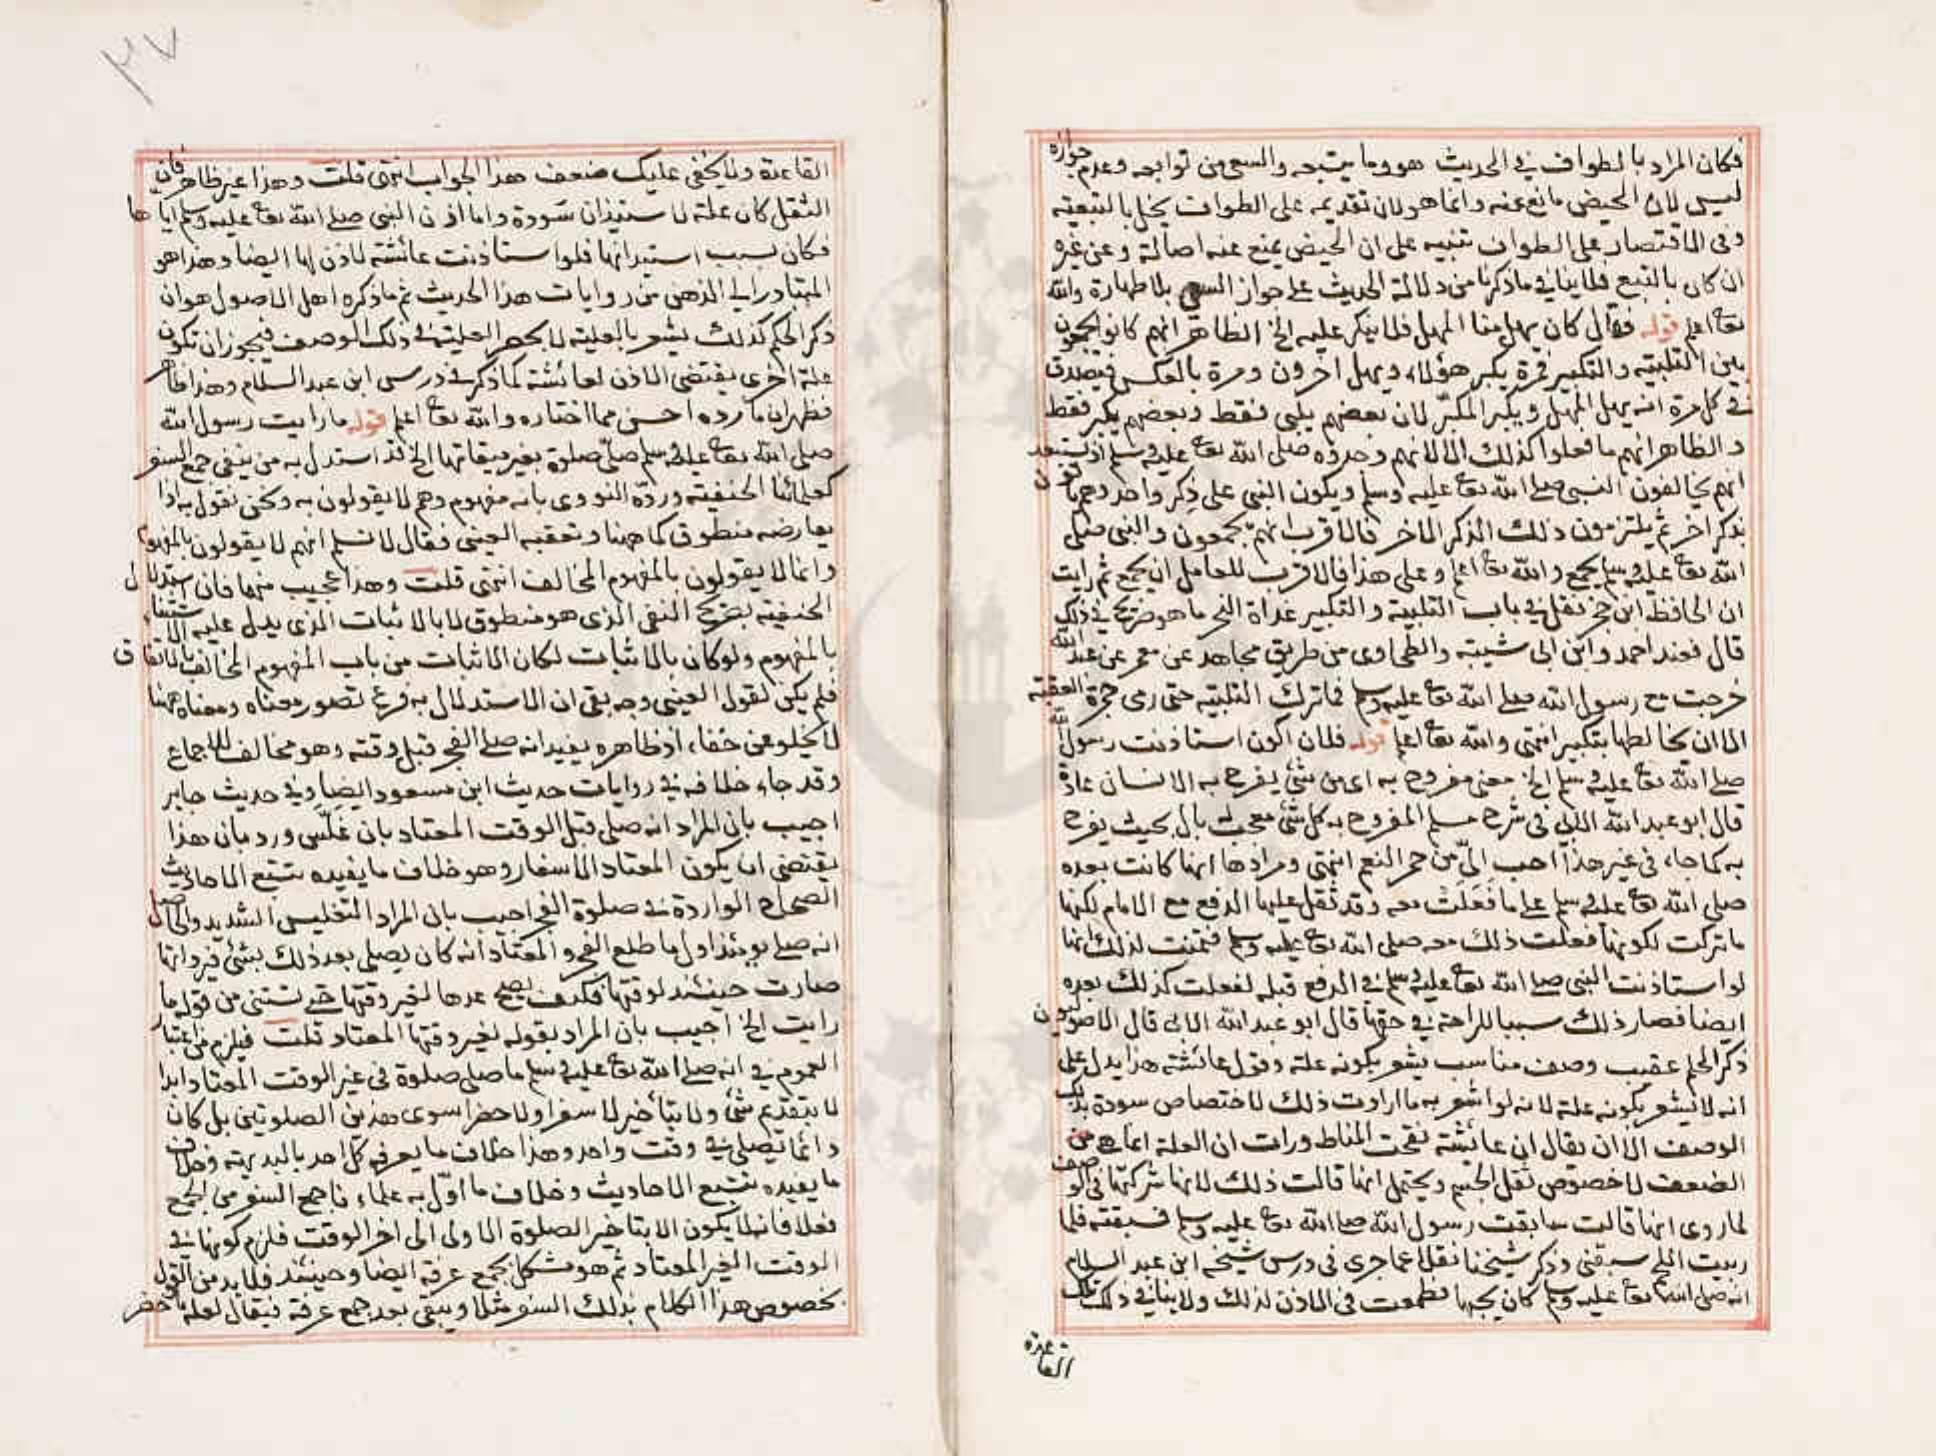 فكان المراد بالطواف في الحديث هو وما يتبعه والسعي من توابعه وعدم جوازه
ليس لان الحيض مانع عنه وانما هو لان تقديمه على الطواف يخل بالتبعية
وفي الاقتصار على الطواف تنبيه على ان الحيض يمنع عنه اصالة وعن غيره
ان كان بالتبع فلا ينافي ما ذكرنا من دلالة الحديث على جواز السعي بلا طهارة والله
تعا اعلم قوله فقال كان يهل منا المهل فلا ينكر عليه الخ الظاهر انهم كانوا يجمعون
بين التلبية والتكبير فمرة يكبر هؤلاء ويهل اخرون ومرة بالعكس فيصدق
في كل مرة انه يهل المهل ويكبر المكبّر لان بعضهم يلبي فقط وبعضهم يكبر فقط
والظاهر انهم ما فعلوا كذلك الا لانهم وجدوه صلى الله تعا عليه وسلم اذ يستبعد
انهم يخالفون النبي صلى الله تعا عليه وسلم ويكون النبي على ذكر واحد وهم يأتون
بذكر اخر ثم يلتزمون ذلك الذكر الاخر فالاقرب انهم يجمعون والنبي صلى
الله تعا عليه وسلم يجمع والله تعا اعلم وعلى هذا فالاقرب للعامل ان يجمع ثم رايت
ان الحافظ ابن حجر نقل في باب التلبية والتكبير غداة النحر ما هو صريح في ذلك
قال فعند احمد وابن ابي شيبة والطحاوي من طريق مجاهد عن معمر عن عبد الله
خرجت مع رسول الله صلى الله تعا عليه وسلم فما ترك التلبية حتى رمى جمرة العقبة
الا ان يخالطها بتكبير انتهى والله تعا اعلم قوله فلان اكون استاذنت رسول الله
صلى الله تعا عليه وسلم الخ معنى مفروح به اي من شئ يفرح به الانسان عادة
قال ابو عبد الله الابي في شرح مسلم المفروح به كل شئ معجب له بال بحيث يفرح
به كما جاء في غير هذا احب اليّ من حمر النعم انتهى ومرادها انها كانت بعده
صلى الله تعا عليه وسلم على ما فَعَلَتْ معه وقد ثقل عليها الدفع مع الامام لكنها
ما تركت لكونها فعلت ذلك معه صلى الله تعا عليه وسلم فتمنت لذلك انها
لو استاذنت النبي صلى الله تعا عليه وسلم في الدفع قبله لفعلت كذلك بعده
ايضا فصار ذلك سببا للراحة في حقها قال ابو عبد الله الابي قال الاصوليون
ذكر الحكم عقيب وصف مناسب يشعر بكونه علة وقول عائشة هذا يدل على
انه لا يشعر بكونه علة لانه لو اشعر به ما ارادت ذلك لاختصاص سودة بذلك
الوصف الا ان يقال ان عائشة نقحت المناط ورات ان العلة انما هي من
الضعف لا خصوص ثقل الجسم ويحتمل انها قالت ذلك لانها شركتها في الوصف
لما روى انها قالت سابقت رسول الله صلى الله تعا عليه وسلم فسبقته فلما
ربيت اللحم سبقني وذكر شيخنا نقلا عما جرى في درس شيخه ابن عبد السلام
انه صلى الله تعا عليه وسلم كان يحبها فطمعت في الاذن لذلك ولا ينافي ذلك تلك
القاعدة
٣٧
القاعدة ولا يخفى عليك ضعف هذا الجواب انتهى قلت وهذا غير ظاهر فان
الثقل كان علة لاستيذان سودة واما اذن النبي صلى الله تعا عليه وسلم اياها
فكان بسبب استيذانها فلو استاذنت عائشة لاذن لها ايضا وهذا هو
المتبادر الى الذهن من روايات هذا الحديث ثم ما ذكره اهل الاصول هو ان
ذكر الحكم كذلك يشعر بالعلية لا بحصر العلية في ذلك الوصف فيجوز ان تكون
علة اخرى يقتضي الاذن لعائشة كما ذكر في درس ابن عبد السلام وهذا ظاهر
فظهر ان ما رده احسن مما اختاره والله تعا اعلم قوله ما رايت رسول الله
صلى الله تعا عليه وسلم صلّى صلوة بغير ميقاتها الخ قد استدل به من ينفي جمع السفر
كعلمائنا الحنفية وردّه النووى بانه مفهوم وهم لا يقولون به ونحن نقول به اذا
يعارضه منطوق كما ههنا وتعقبه العيني فقال لا نسلم انهم لا يقولون بالمفهوم
وانما لا يقولون بالمفهوم المخالف انتهى قلت وهذا عجيب منهما فان استدلال
الحنفية بصريح النفي الذي هو منطوق لا بالاثبات الذي يدل عليه الاستثناء
بالمفهوم ولو كان بالاثبات لكان الاثبات من باب المفهوم المخالف بالاتفاق
فلم يكن لقول العيني وجه بقي ان الاستدلال به فرع تصور معناه ومعناه ههنا
لا يخلو عن خفاء اذ ظاهره يفيد انه صلى الفجر قبل وقته وهو مخالف للاجماع
وقد جاء خلافه في روايات حديث ابن مسعود ايضا وفي حديث جابر
اجيب بان المراد انه صلى قبل الوقت المعتاد بان غلّس ورد بان هذا
يقتضي ان يكون المعتاد الاسفار وهو خلاف ما يفيده تتبع الاحاديث
الصحاح الواردة في صلوة الفجر اجيب بان المراد التغليس الشديد والحاصل
انه صلى يومئذ اول ما طلع الفجر والمعتاد انه كان يصلي بعد ذلك بشئ فيرد انها
صارت حينئذ لوقتها فكيف يصح عدها لغير وقتها حتى تستثنى من قوله ما
رايت الخ اجيب بان المراد بقوله لغير وقتها المعتاد قلت فيلزم من اعتبار
العموم في انه صلى الله تعا عليه وسلم ما صلى صلوة في غير الوقت المعتاد ابدا
لا بتقديم شئ ولا بتأخير لا سفرا ولا حضرا سوى هذين الصلوتين بل كان
دائما يصلي في وقت واحد وهذا خلاف ما يعرفه كل احد بالبديهة وخلاف
ما يفيده تتبع الاحاديث وخلاف ما اوّل به علماءنا جمع السفر من الجمع
فعلا فانه لا يكون الا بتاخير الصلوة الاولى الى اخر الوقت فلزم كونها في
الوقت الغير المعتاد ثم هو مشكل بجمع عرفة ايضا وحينئذ فلا بد من القول
بخصوص هذا الكلام بذلك السفر مثلا ويبقى بعد جمع عرفة فيقال لعله ما حضر